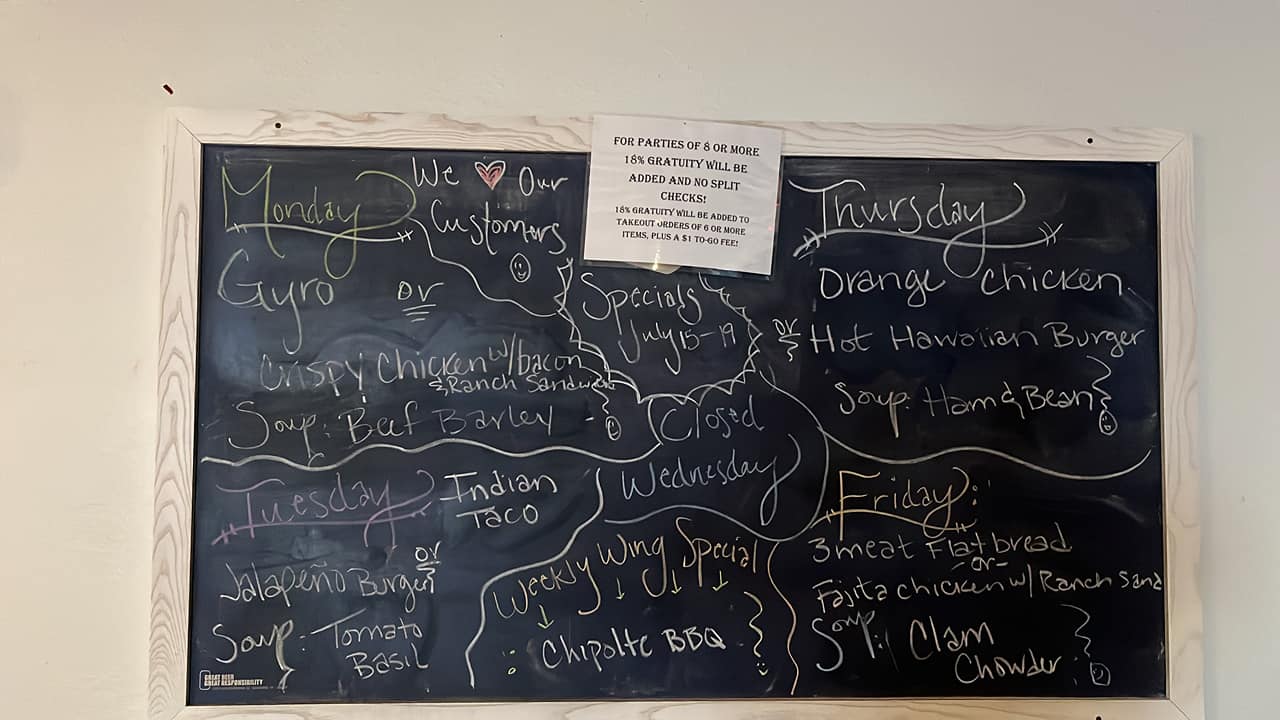 Monday
We ♥ Our
Customers
Gyro or
Crispy Chicken w/bacon
& Ranch Sandwich
Soup: Beef Barley
Tuesday
Indian
Taco
or
Jalapeño Burger
Soup: Tomato
Basil
GREAT BEER
GREAT RESPONSIBILITY
FOR PARTIES OF 8 OR MORE
18% GRATUITY WILL BE
ADDED AND NO SPLIT
CHECKS!
18% GRATUITY WILL BE ADDED TO
TAKEOUT ORDERS OF 6 OR MORE
ITEMS, PLUS A $1 TO-GO FEE!
Specials
July 15-19
Closed
Wednesday
Weekly Wing Special
Chipolte BBQ
Thursday
Orange Chicken
or Hot Hawaiian Burger
Soup: Ham & Bean
Friday:
3 meat Flatbread
-or-
Fajita chicken w/ Ranch Sand
Soup: Clam
Chowder